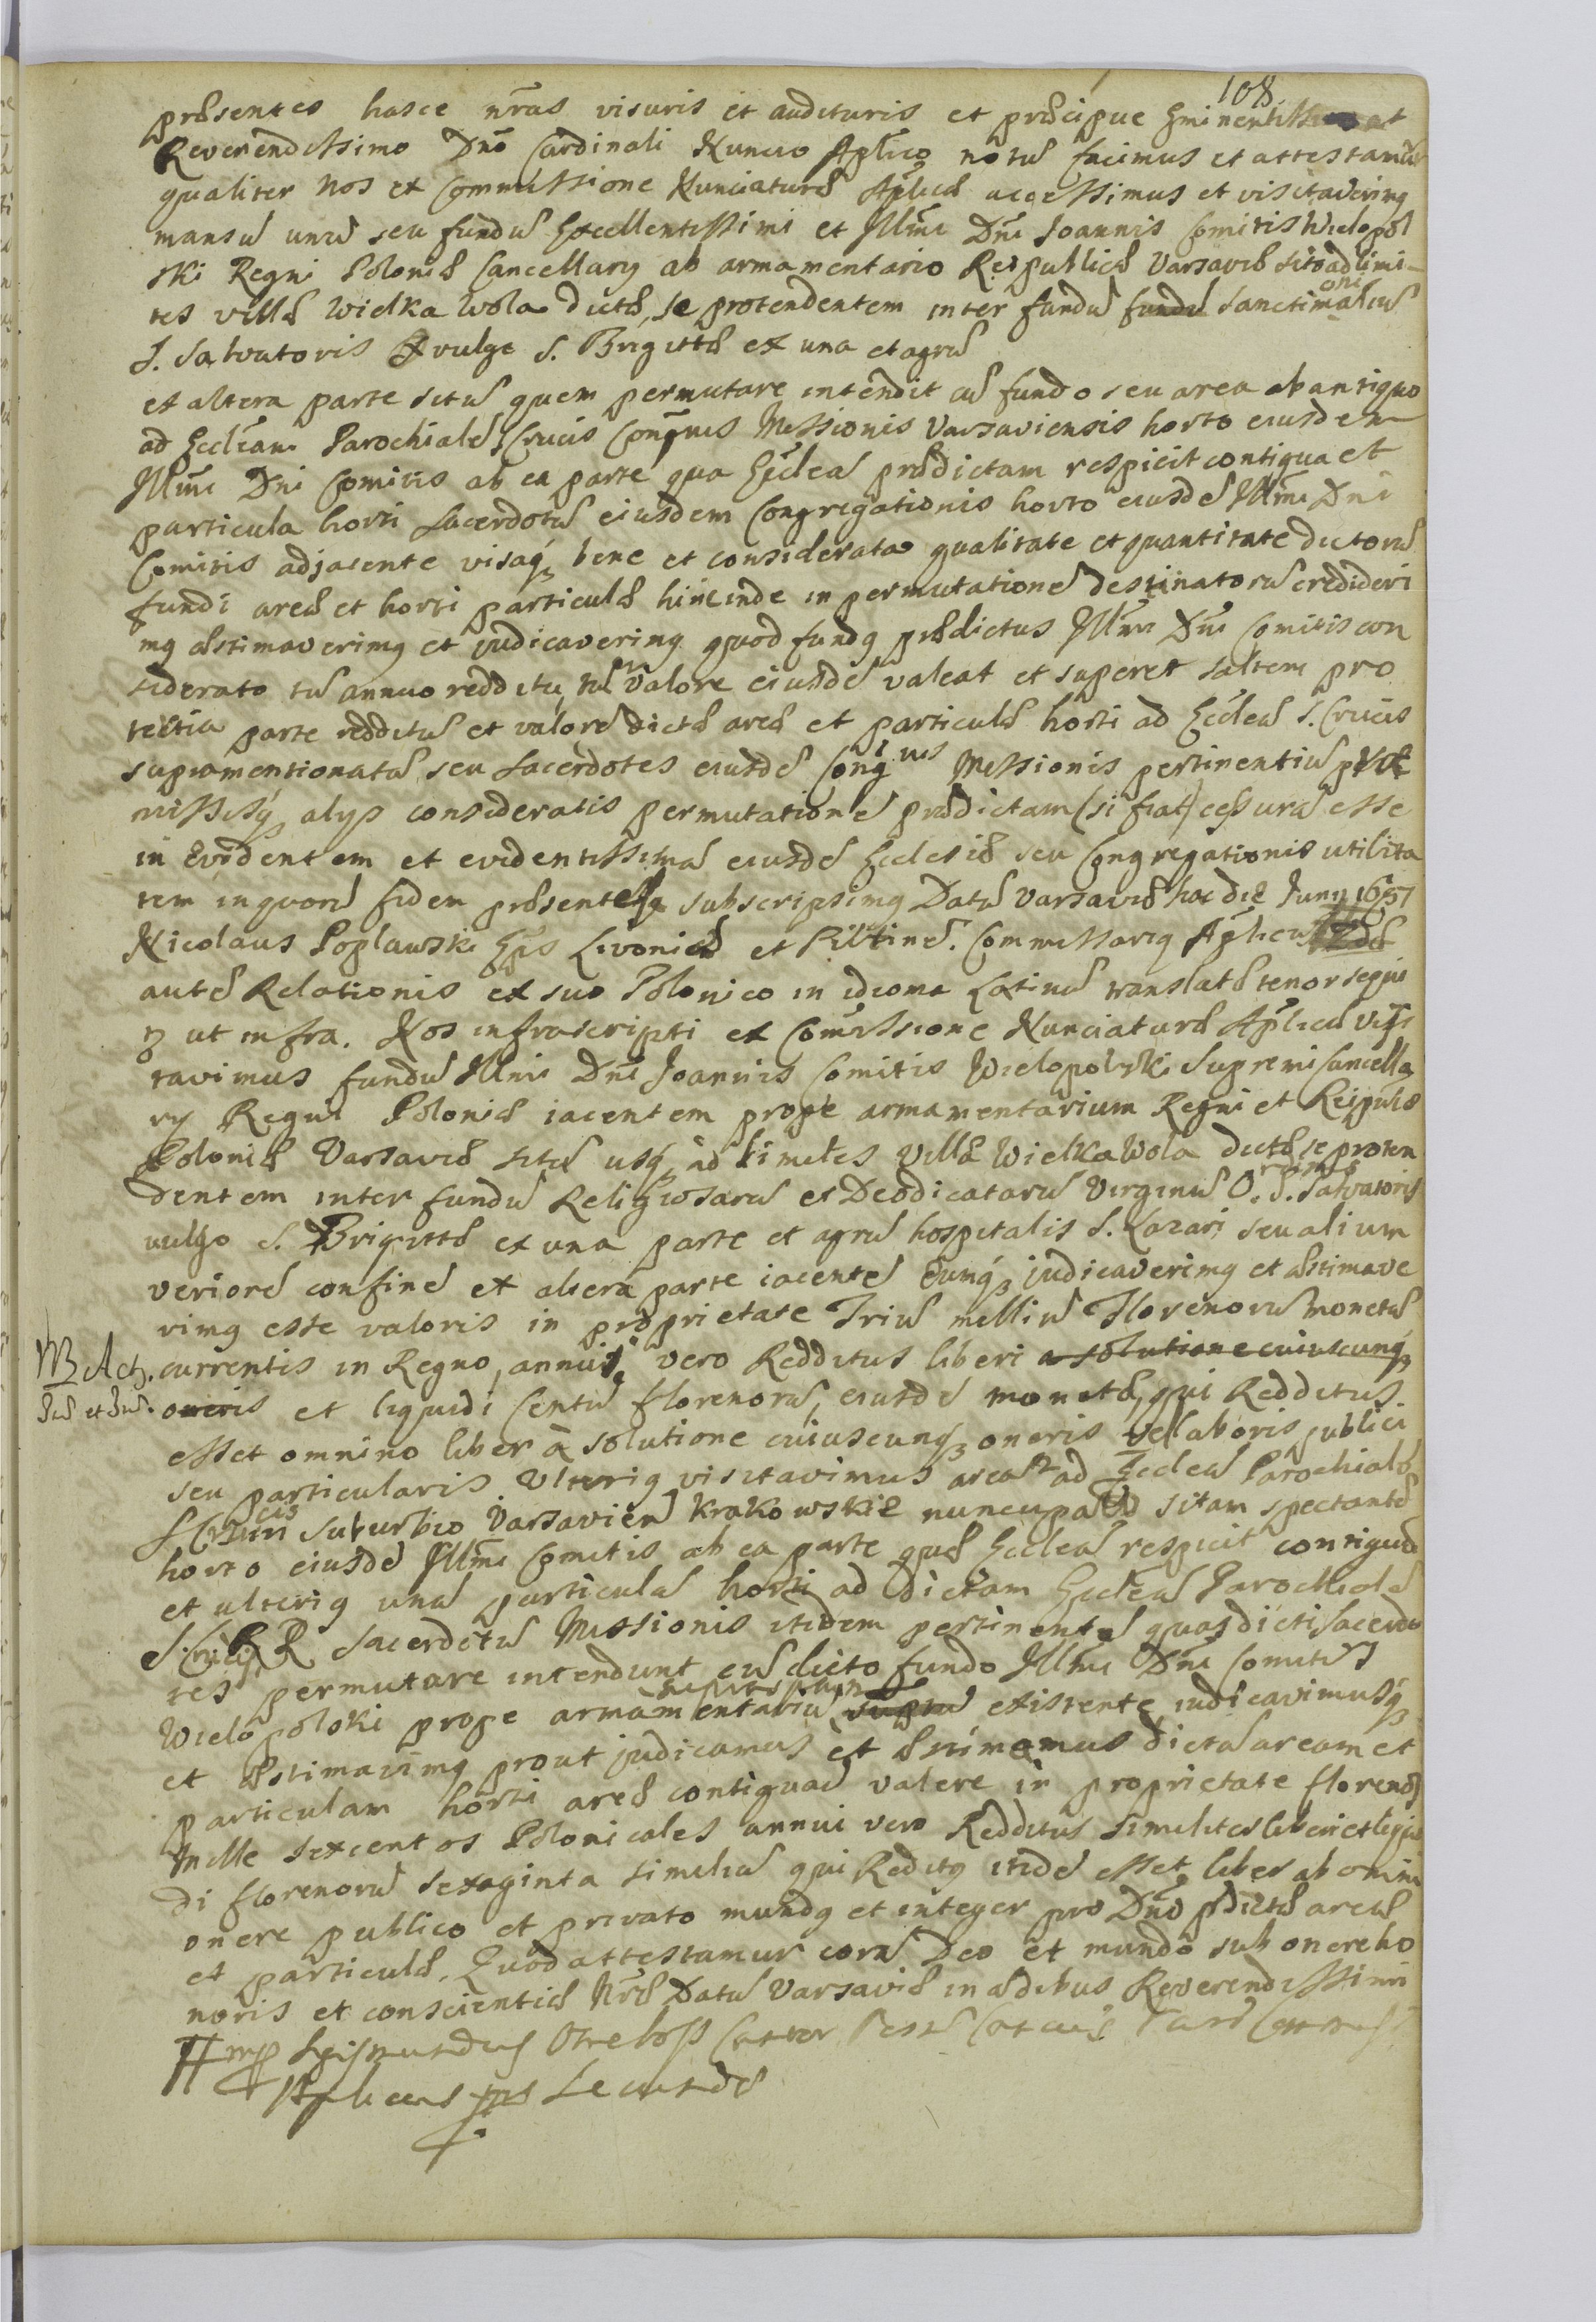 108
præsentes hasce nr̃as visuris et audituris et præcipue Eminentissimo et
Reverendissimo Dnõ Cardinali Nuncio Aplico notũ facimus et attestamur
qualiter Nos ex Commissione Nunciaturæ Aplicæ accessimus et visitaverimq
mansũ unũ seu fundũ Excellentissimi et Illm̃i Dñi Joannis Comitis Wielopol
ski Regni Poloniæ Cancellarij ab armamentario Reipublicæ Varsaviæ sito ad limi-
tes villæ Wielka Wola dictæ, se protendentem inter fundũ fundũ Sanctimonialiũ
S. Salvatoris vulgo S. Brigittæ ex una et agrũ
ex altera parte sitũ quem permutare intendit cũ fundo seu area ab antiquo
ad Eccl̃eam Parochialẽ S. Crucis Congnis Missionis Varsaviensis horto eiusdem
Illm̃i Dñi Comitis ab ea parte qua Eccleã prædictam respicit contigua et
particula horti Sacerdotũ eiusdem Congregationis horto eiusdẽ Illm̃i Dñi
Comitis adjacente visaq3 bene et considerata qualitate et quantitate dictorũ
fundi areæ et horti particulæ hincinde in permutationẽ destinatorũ credideri
mq æstimaverimq et judicaverimq quod fundq prædictus Illm̃i Dñi Comitis con
siderato tũ annuo redditu, tũ valore eiusdẽ valeat et superet saltem pro
tertia parte redditũ et valorẽ dictæ areæ et particulæ horti ad Eccleã S. Crucis
supramentionatã seu Sacerdotes eiusdẽ Congnis Missionis pertinentiũ
missisq3 alijs consideratis permutationẽ prædictam (si fiat) cessurã esse
in Evidentem et evidentissimã eiusdẽ Ecclesiæ seu Congregationis utilita
tem in quorũ fidem præsentes subscripsimq Datũ Varsaviæ hac die Junij 1687
Nicolaus Poplawski Eps Livoniæ et Piltinẽ. Commissariq Aplicus
autẽ Relationis ex suo Polonico in idioma Latinũ translatæ tenor sequi
3 ut infra. Nos infrascripti ex Com̃issione Nunciaturæ Aplicæ visi
tavimus fundũ Illm̃i Dñi Joannis Comitis Wielopolski Supremi Cancella
rij Regni Poloniæ iacentem prope armamentarium Regni et Reiplicæ
Poloniæ Varsaviæ sitũ usq3 ad limites Villæ Wielka Wola dictæ se proten
dentem inter fundũ Religiosarũ et Deodicatarũ Virginũ O. S. Salvatoris
vulgo S. Brigittæ ex una parte et agrũ hospitalis S. Lazari seu alium
veriorẽ confinẽ ex altera parte iacentẽ Eumq3 judicaverimq et æstimave
rimq esse valoris in proprietate Triũ milliũ Florenorũ monetæ
currentis in Regno, annui vero Redditus liberi a solutione cuiuscunq3
oneris et liquidi Centũ florenorũ, eiusdẽ monetæ, qui Redditus
esset omnino liber à solutione cuiuscunq3 oneris vel laboris publici
seu particularis. Ulteriq visitavimus areã ad Eccleã Parochialẽ
S Crucis in suburbio Varsavien Krakowskie nuncupato sitam spectantẽ
horto eiusdẽ Illm̃i Comitis ab ea parte quæ Eccleã respicit contiguã
et ulteriq unã particulã horti ad dictam Eccleã Parochialẽ
S. Crucis R. Sacerdotũ Missionis itidem pertinentẽ quas dicti Sacerdo
tes permutare intendunt cũ dicto fundo Illm̃i Dñi Comitis
Wielopolski prope armamentariũ supra existente judicavimusq3
et æstimavimq prout judicamus et æstimamus dictã aream et
particulam horti areæ contiguã valere in proprietate florenos
Mille sexcentos Polonicales annui vero Redditus similiter liberi et liqui
di florenorũ sexaginta similiũ qui Reditq itidẽ esset liber ab omni
onere publico et privato mundq et integer pro Dño prædictæ areæ
et particulæ. Quod attestamur corã Deo et mundo sub onere ho
noris et conscientiæ Nr̃æ Datũ Varsaviæ in ædibus Reverendissimi
NB Act.